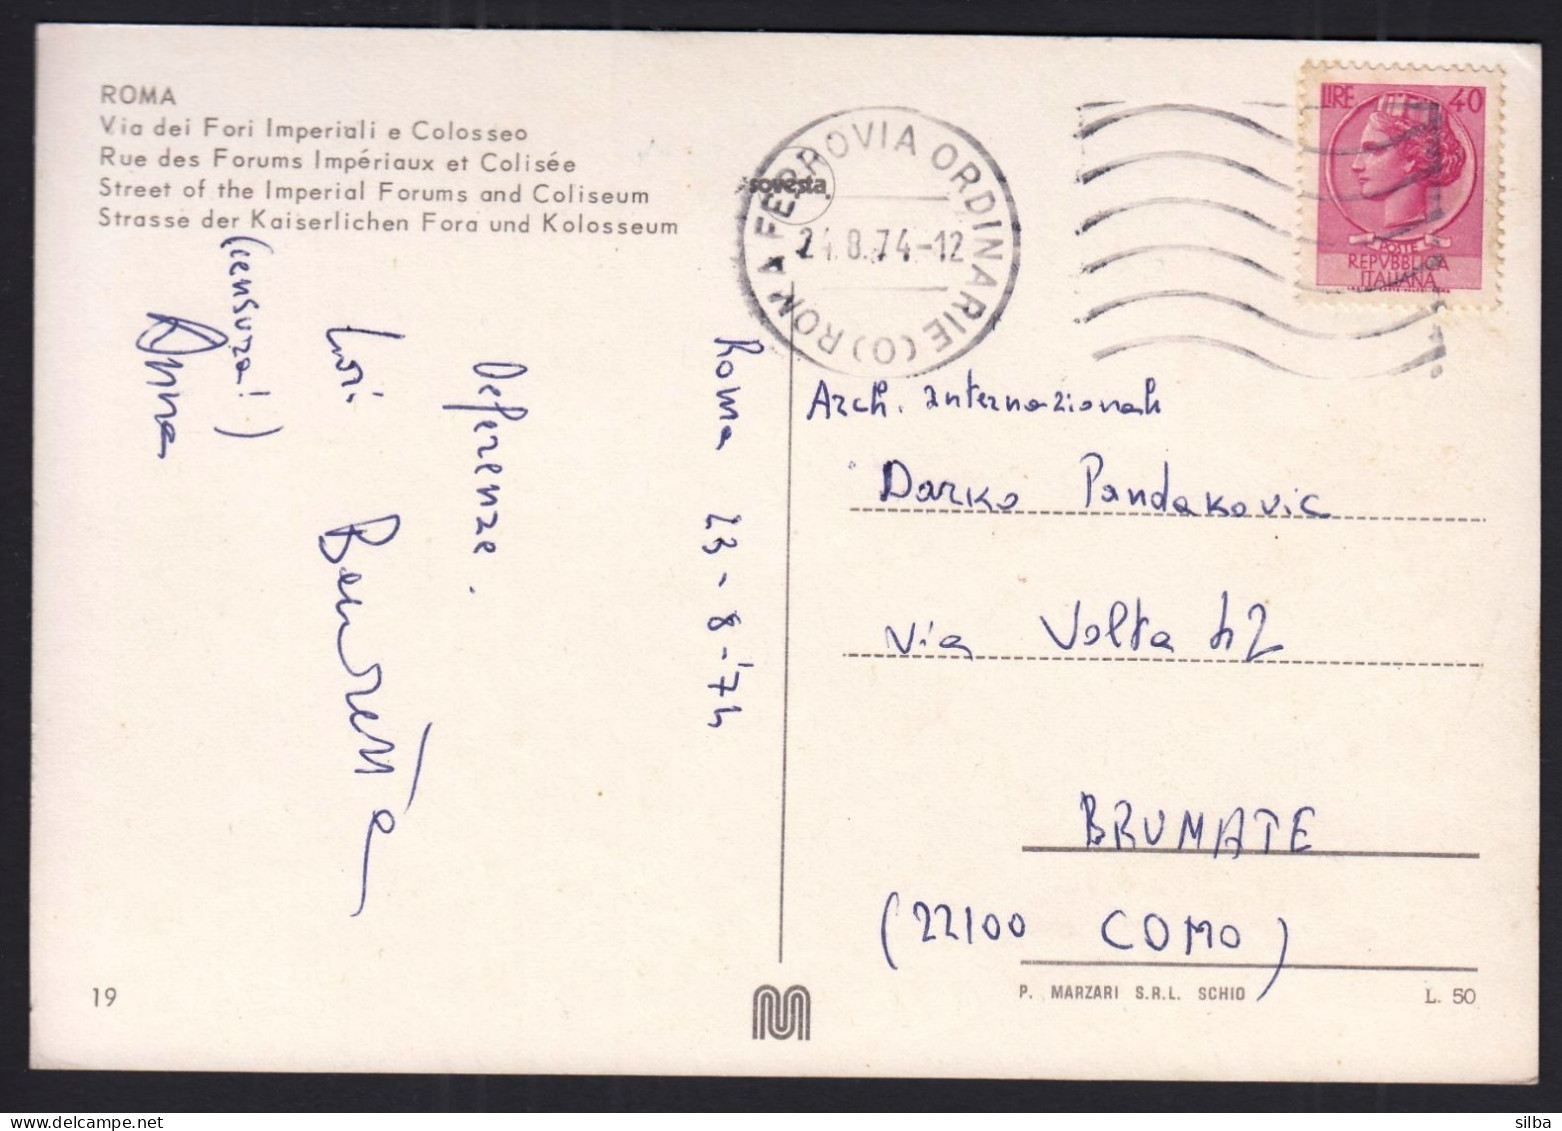 ROMA
Via dei Fori Imperiali e Colosseo
Rue des Forums Impériaux et Colisée
Street of the Imperial Forums and Coliseum
Strasse der Kaiserlichen Fora und Kolosseum
ROMA FERROVIA ORDINARIE (O)
24.8.74-12
sovesta
LIRE 40
POSTE
REPVBBLICA
ITALIANA
Roma 23-8-'74
Deferenze.
(censura!)
Anna
Arch. internazionale
Darko Pandakovic
Via Volta 42
BRUMATE
(22100 COMO)
19
P. MARZARI S.R.L. SCHIO
L. 50
silba